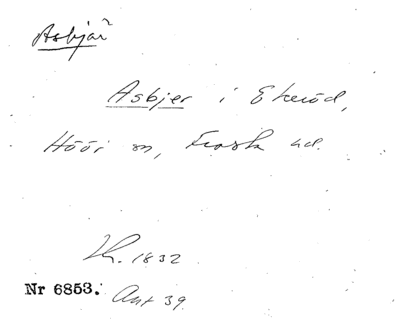 Asbjär
Asbjer i Ekeröd,
Hööi sn, Frosta hd.
Lh. 1832
Nr 6853. Ant 39